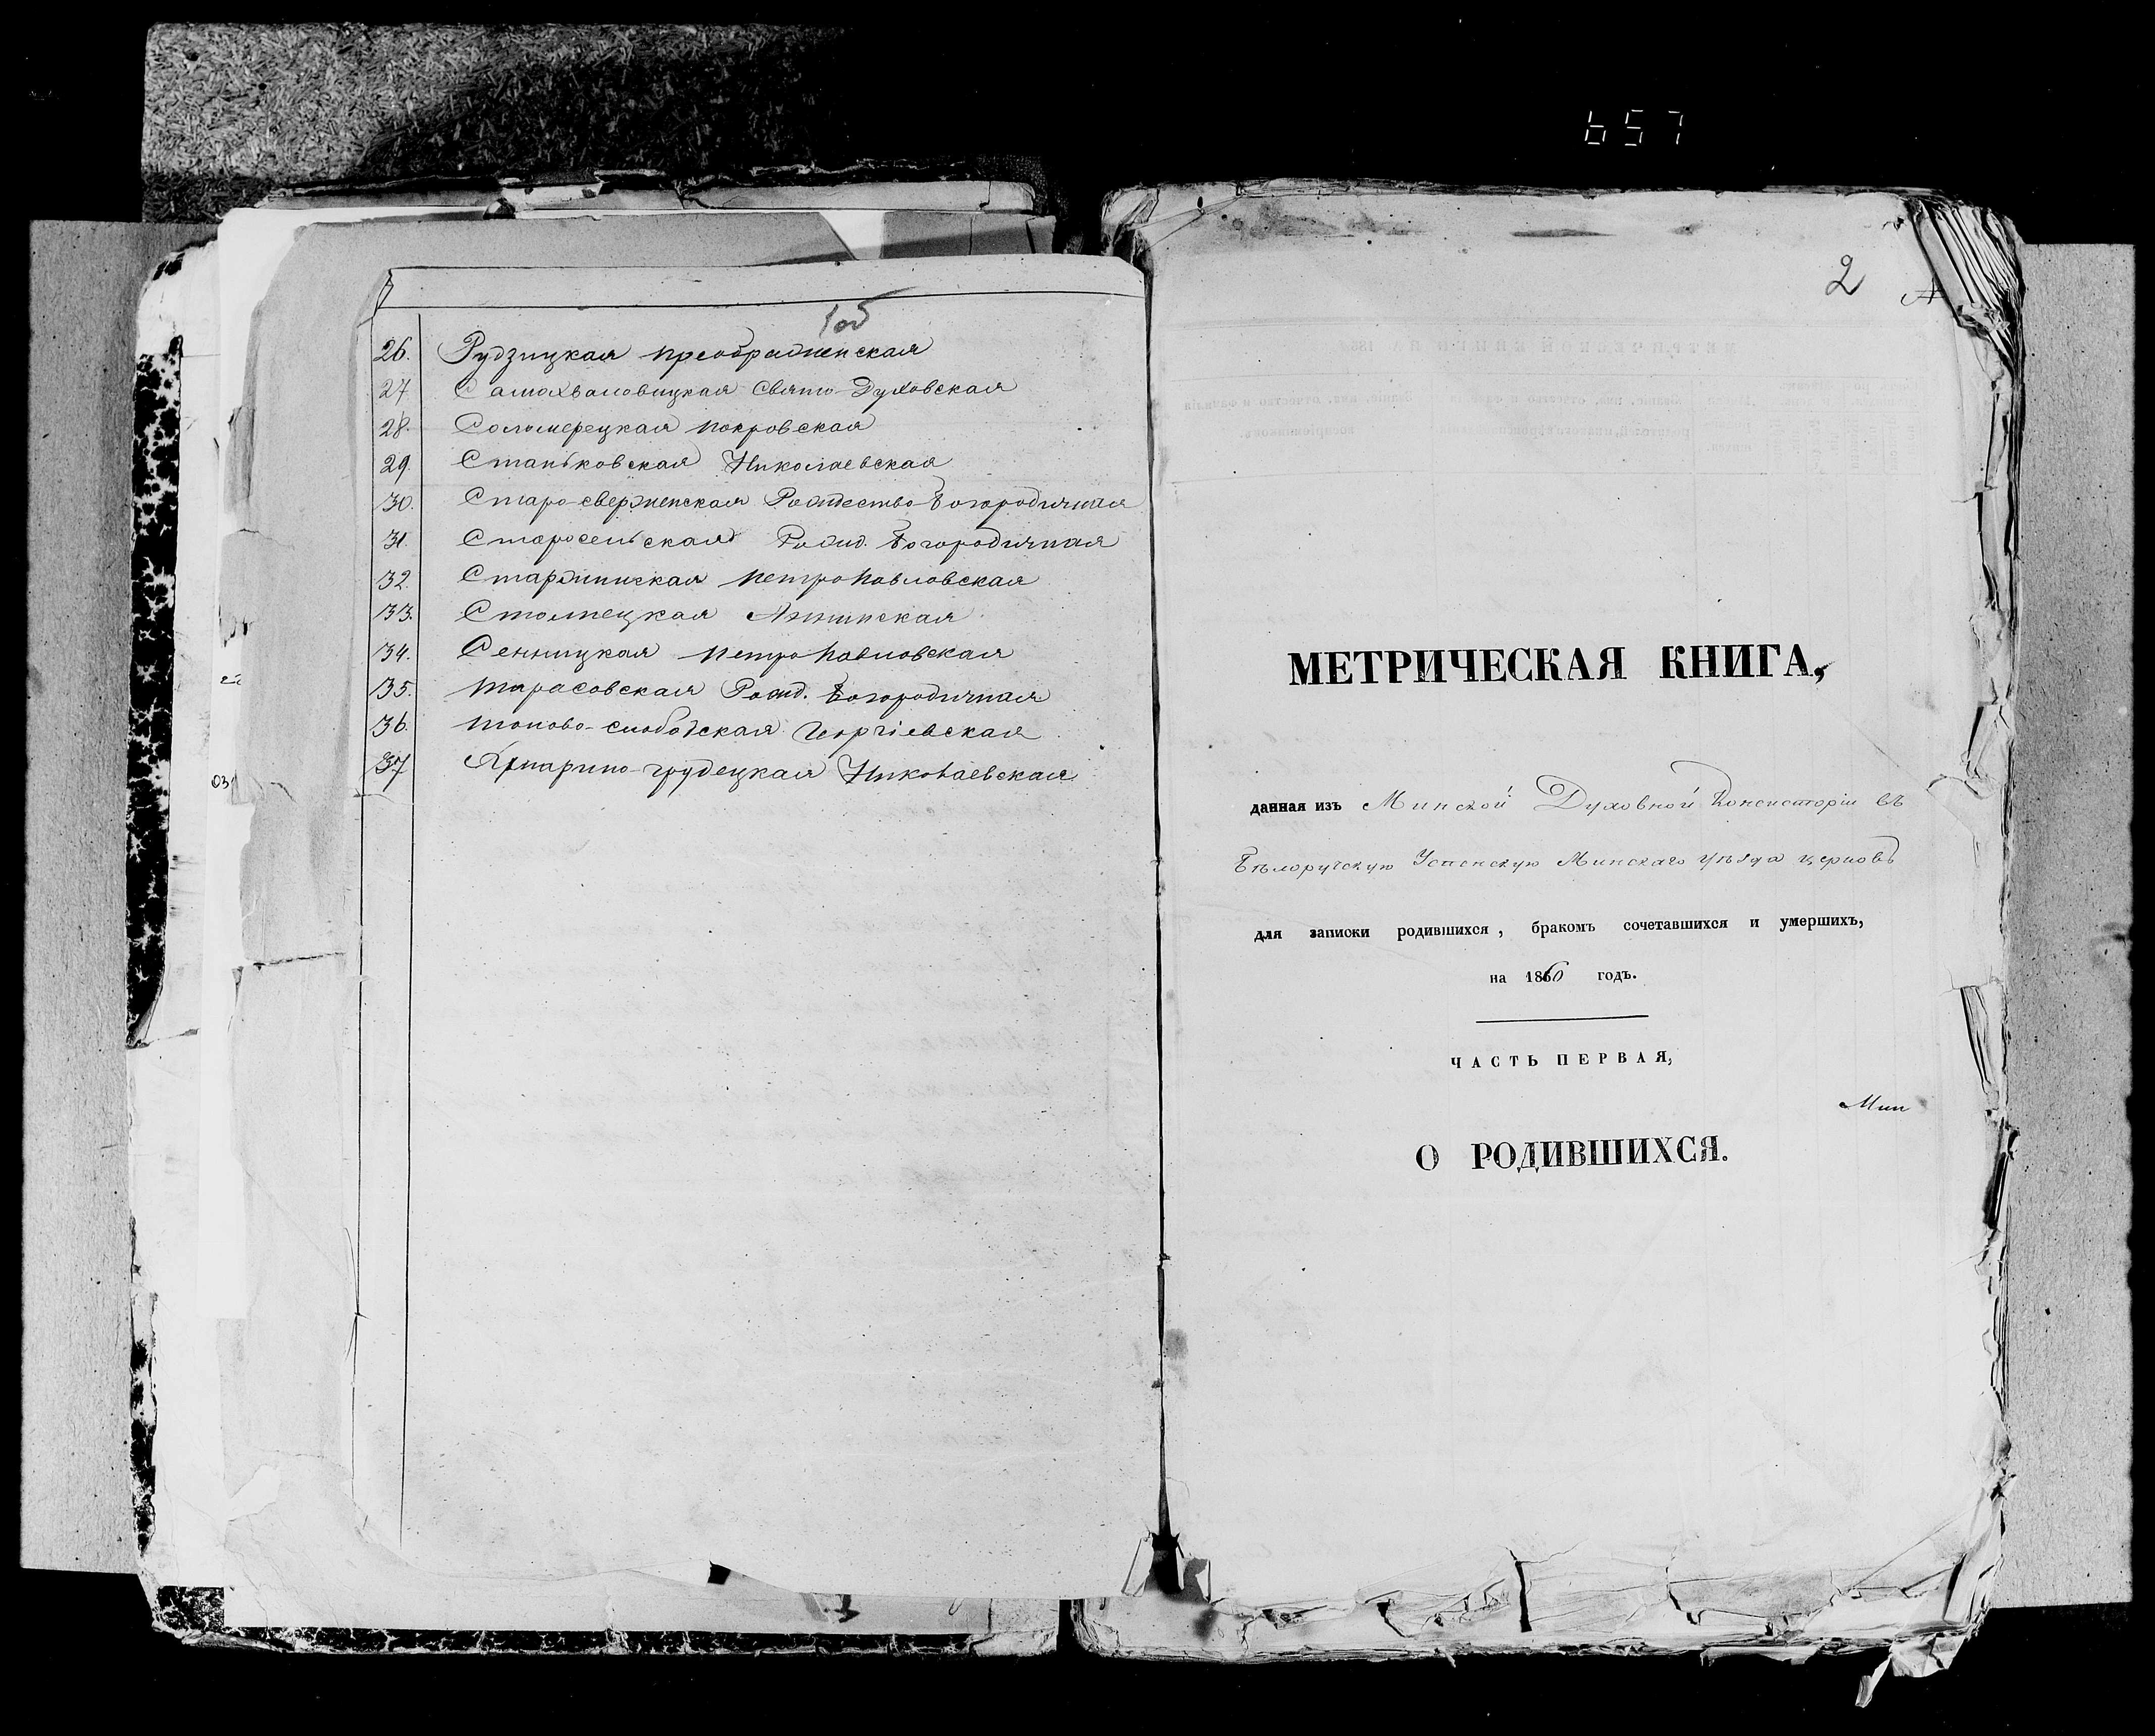 657
1об
26. Рудзицкая Преображенская
27 Самохваловицкая Свято-Духовская
28. Соломерецкая Покровская
29. Станьковская Николаевская
30. Старо-Свержненская Рождество-Богородичная
31. Старосельская Рожд. Богородичная
32. Петропавловская
33. Столпецкая Аннинская
34. Сенницкая Петропавловская
35. Тарасовская Рожд. Богородичная
36. Георгіевская
37 Николаевская
2
МЕТРИЧЕСКАЯ КНИГА,
данная изъ Минской Духовной Консисторіи въ
Бѣлоручскую Успенскую Минскаго уѣзда церковь
для записки родившихся, бракомъ сочетавшихся и умершихъ,
на 1860 годъ.
ЧАСТЬ ПЕРВАЯ,
Мин
О РОДИВШИХСЯ.